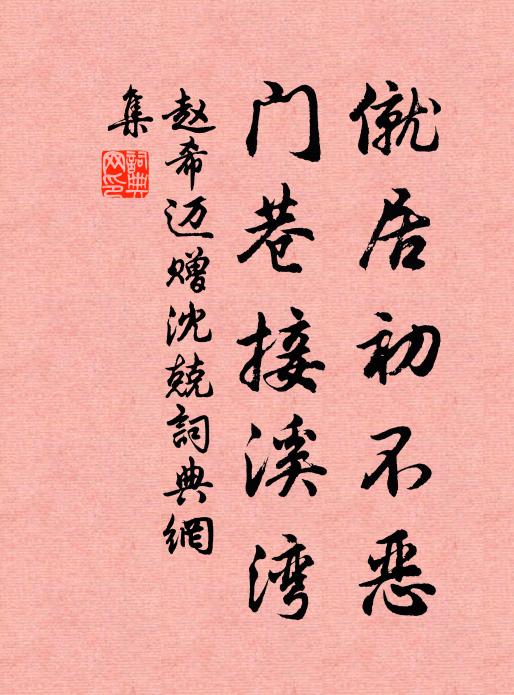 僦居初不恶
门巷接溪湾
赵希迈赠沈兢詞典網
集
詞典
网印